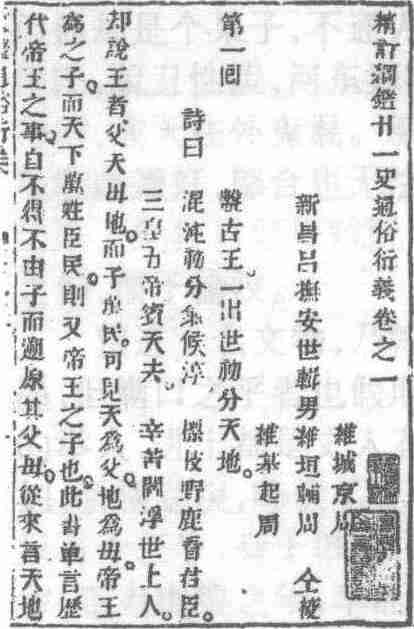 精訂綱鑑廿一史通俗衍義卷之一
維城京周
新昌呂撫安世輯男維垣輔周 仝校
維基起周
第一回 盤古王一出世初分天地。
詩曰 混沌初分氣候淳 標枝野鹿看君臣。
三皇五帝賓天夫。 辛苦閻浮世上人。
却說王者父天母地而子萬民。可見天為父。地為母。帝王
為之子。而天下萬姓臣民。則又帝王之子也。此書单言歷
代帝王之事。自不得不由子而溯原其父母。從來言天地